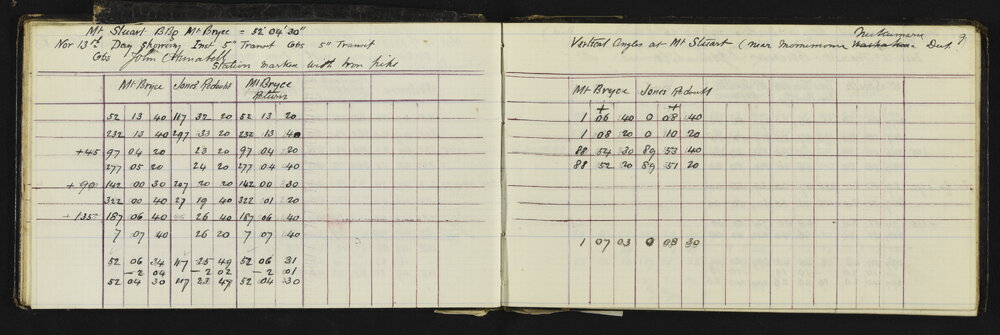 Mt Stuart BBg Mt Bryce = 52° 04' 30"
Nov 13th Day Showery Inst 5" Transit Obs 5" Transit
Obs John
Station marked with Iron pike
Mt Bryce Jones Redoubt Mt Bryce
Return
52 13 40 117 32 20 52 13 20
232 13 40 297 33 20 232 13 40
+45 97 04 20 23 20 97 04 20
277 05 20 24 20 277 04 40
+90 142 00 30 207 20 20 142 00 30
322 00 40 27 19 40 322 01 20
+135 187 06 40 26 40 187 06 40
7 07 40 26 20 7 07 40
52 06 34 117 25 49 52 06 31
-2 04 -2 02 -2 01
52 04 30 117 23 47 52 04 30
9
Nukumaru
Vertical Angles at Mt Stuart (near Momomona Dist.
Mt Bryce Jones Redoubt
+ +
1 06 40 0 08 40
1 08 20 0 10 20
88 54 30 89 53 40
88 52 20 89 51 20
1 07 03 0 08 39